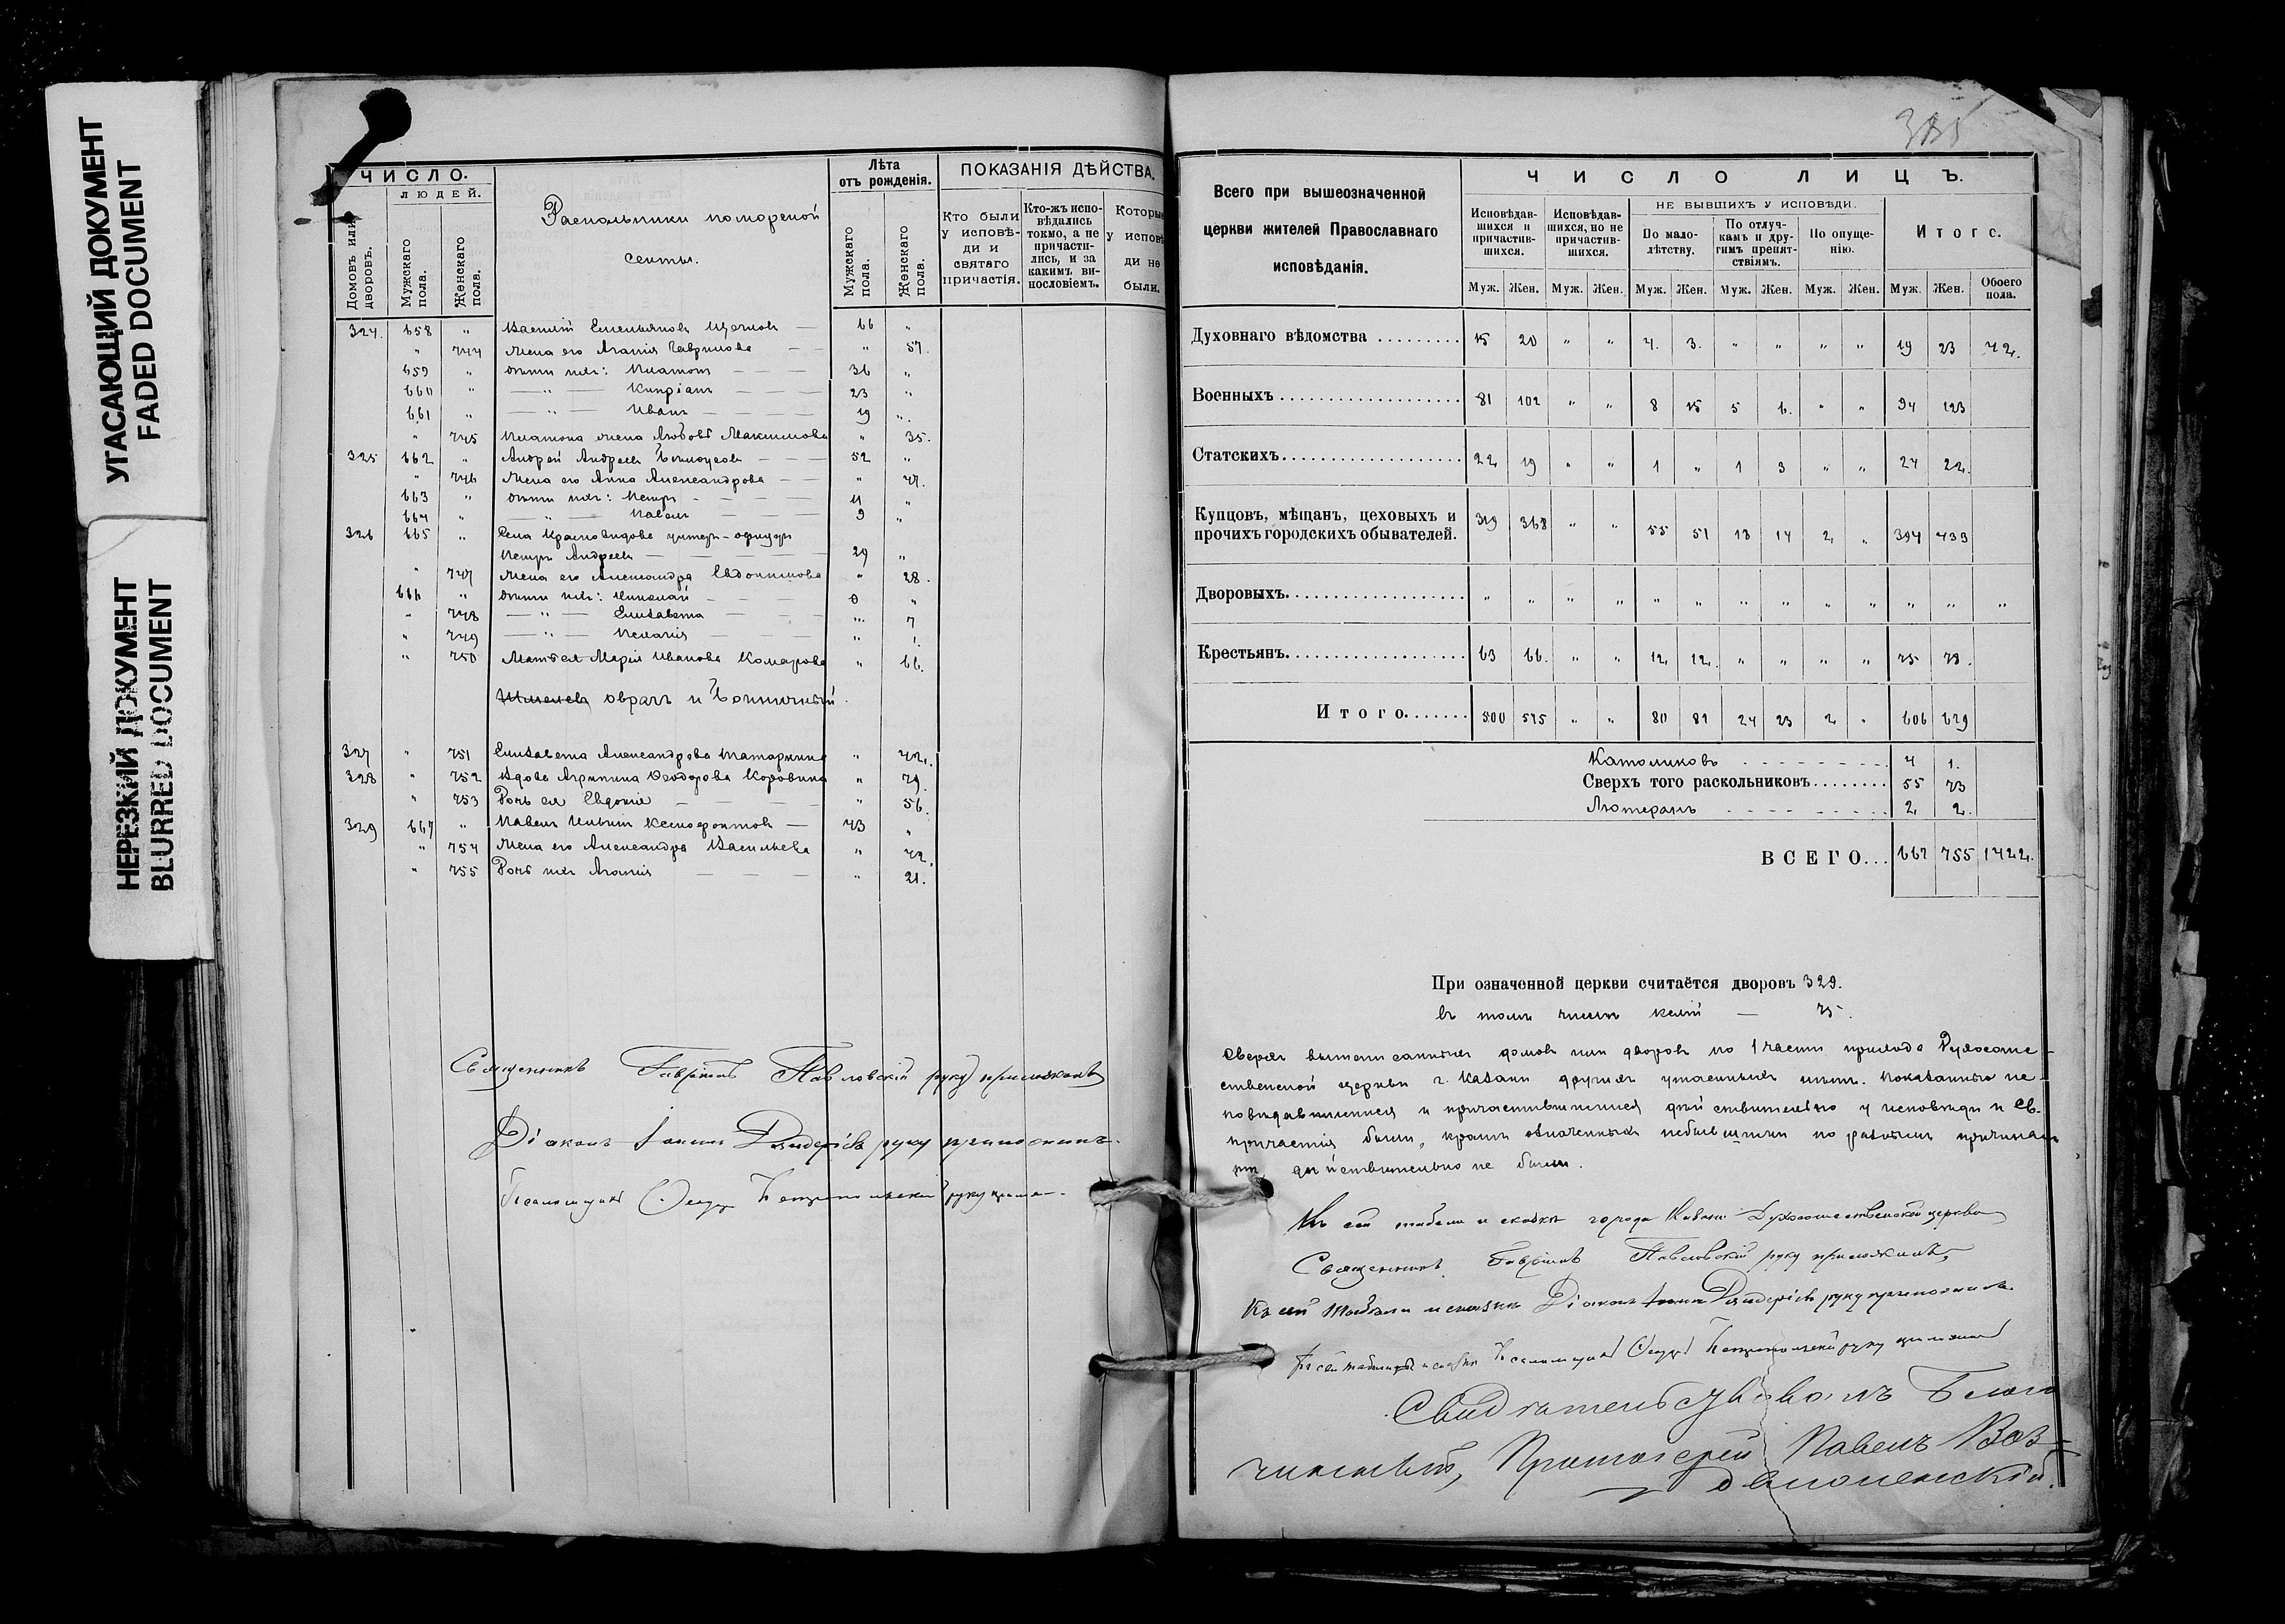 УГАСАЮЩИЙ ДОКУМЕНТ
FADED DOCUMENT
НЕРЕЗКИЙ ДОКУМЕНТ
BLURRED DOCUMENT
ЧИСЛО.
ЛЮДЕЙ.
Домовъ или дворовъ.
Мужскаго пола.
Женскаго пола.
Раскольники поморской
секты.
Лѣта
отъ рожденія.
Мужскаго пола.
Женскаго пола.
ПОКАЗАНІЯ ДѢЙСТВА.
Кто были
у исповѣ-
ди и
святаго
причастія.
Кто-жъ испо-
вѣдались
токмо, а не
причасти-
лись, и за
какимъ ви-
нословіемъ.
Которые
у исповѣ
ди не
были.
324. 658 " Василій Емельяновъ 66 "
" 744 Жена его Агапія Гаврилова " 57.
659 " дѣти ихъ: Платонъ 36 "
660 " — " — Кипріанъ 23 "
661 " — " — Иванъ 19 "
" 745 Платона жена Любовь Максимова " 35.
325 662 " Андрей Андреевъ 52 "
" 746 Жена его Анна Александрова " 47.
663 " дѣти ихъ: Петръ 11 "
664 " — " — Павелъ 9 "
326 665 " Села Красновидова унтеръ-офицеръ
Петръ Андреевъ 29 "
" 747 Жена его Александра Евдокимова " 28.
666 " дѣти ихъ: Николай 0 "
" 748 — " — Елизавета " 7
" 749 — " — Пелагія " 1.
" 750 Мать ея Марія Иванова Комарова " 66.
оврагъ и
327 " 751 Елизавета Александрова Татаркина " 42.
328 " 752 Вдова Агрипина Ѳеодорова Коровина " 79.
" 753 Дочь ея Евдокія " 56.
329 667 " Павелъ Ильинъ Ксенофонтовъ 43 "
" 754 Жена его Александра Васильева " 42.
" 755 Дочь ихъ Агапія " 21.
Священникъ Гавріилъ Павловскій руку приложилъ
Діаконъ Іоаннъ руку приложилъ.
Псаломщикъ руку прилож.
385
Всего при вышеозначенной
церкви жителей Православнаго
исповѣданія.
ЧИСЛО ЛИЦЪ.
Исповѣдав-
шихся и
причастив-
шихся.
Исповѣдав-
шихся, но не
причастив-
шихся.
НЕ БЫВШИХЪ У ИСПОВѢДИ.
По мало-
лѣтству.
По отлуч-
камъ и дру-
гимъ препят-
ствіямъ.
По опуще-
нію.
Итого.
Муж. Жен. Муж. Жен. Муж. Жен. Муж. Жен. Муж. Жен. Муж. Жен. Обоего пола.
Духовнаго вѣдомства ......... 15 20 " " 4. 3. " " " " 19 23 42.
Военныхъ .................... 81 102 " " 8 15 5 6. " " 94 123
Статскихъ.................... 22 19 " " 1 " 1 3 " " 24 22.
Купцовъ, мѣщанъ, цеховыхъ и
прочихъ городскихъ обывателей. 319 368 " " 55 51 18 14 2 " 394 433
Дворовыхъ.................... " " " " " " " " " " " " "
Крестьянъ.................... 63 66. " " 12 12. " " " " 75 78.
Итого....... 500 575 " " 80 81 24 23 2 " 606 679
Католиковъ 4 1.
Сверхъ того раскольниковъ........ 55 73
Лютеранъ 2 2.
ВСЕГО... 667 755 1422.
При означенной церкви считаётся дворовъ 329.
въ томъ числѣ келій — 75.
Сверхъ вышеписанныхъ домовъ или дворовъ по 1 части прихода Духосоше-
ственской церкви г. Казани другихъ утаенныхъ нѣтъ. Показанные ис-
повѣдавшимися и причастившимися дѣйствительно у исповѣди и Св.
причастія были, кромѣ означенныхъ небывшими по разнымъ причинамъ
дѣйствительно не были.
Къ сей табели и сказкѣ города Казани Духосошественской церкви
Священникъ Гавріилъ Павловскій руку приложилъ,
Къ сей табели и сказкѣ Діаконъ Іоаннъ руку приложилъ
Къ сей табели и сказкѣ Псаломщикъ руку приложилъ
Свидѣтельствовалъ Благо
чинный, Протоіерей Павелъ Воз-